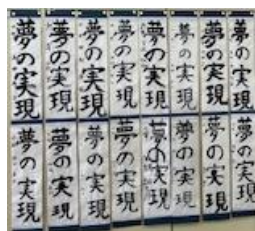 夢の実現
夢の実現
夢の実現
夢の実現
夢の実現
夢の実現
夢の実現
夢の実現
夢の実現
夢の実現
夢の実現
夢の実現
夢の実現
夢の実現
夢の実現
夢の実現